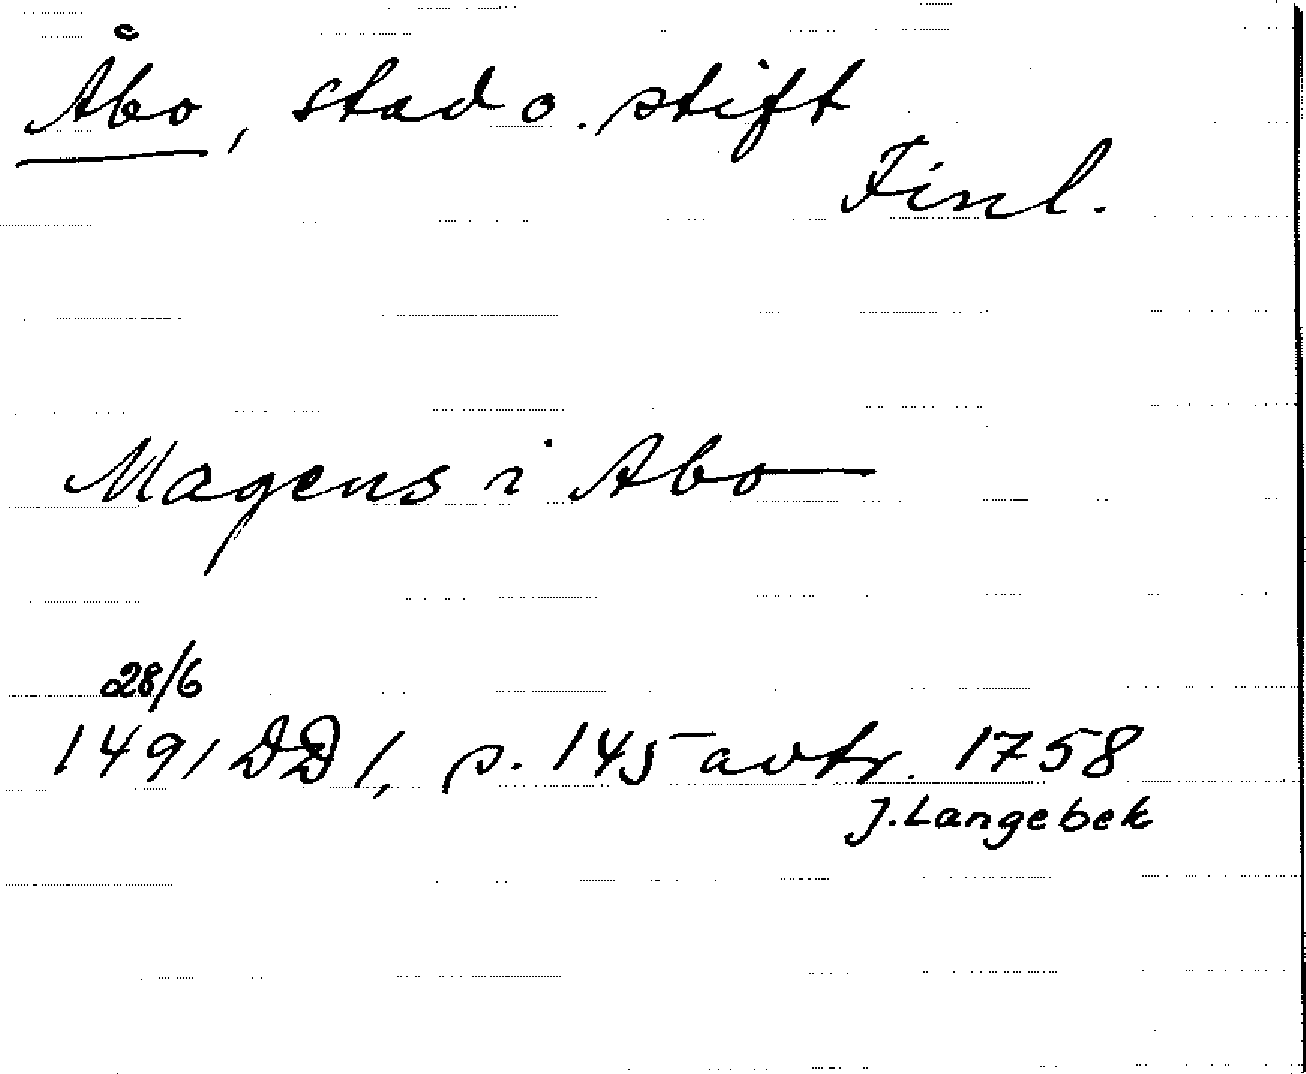 Åbo, stad o. stift
Finl.
Magens i Abo
28/6
1491 DD 1, s. 145 avtr. 1758
J. Langebek